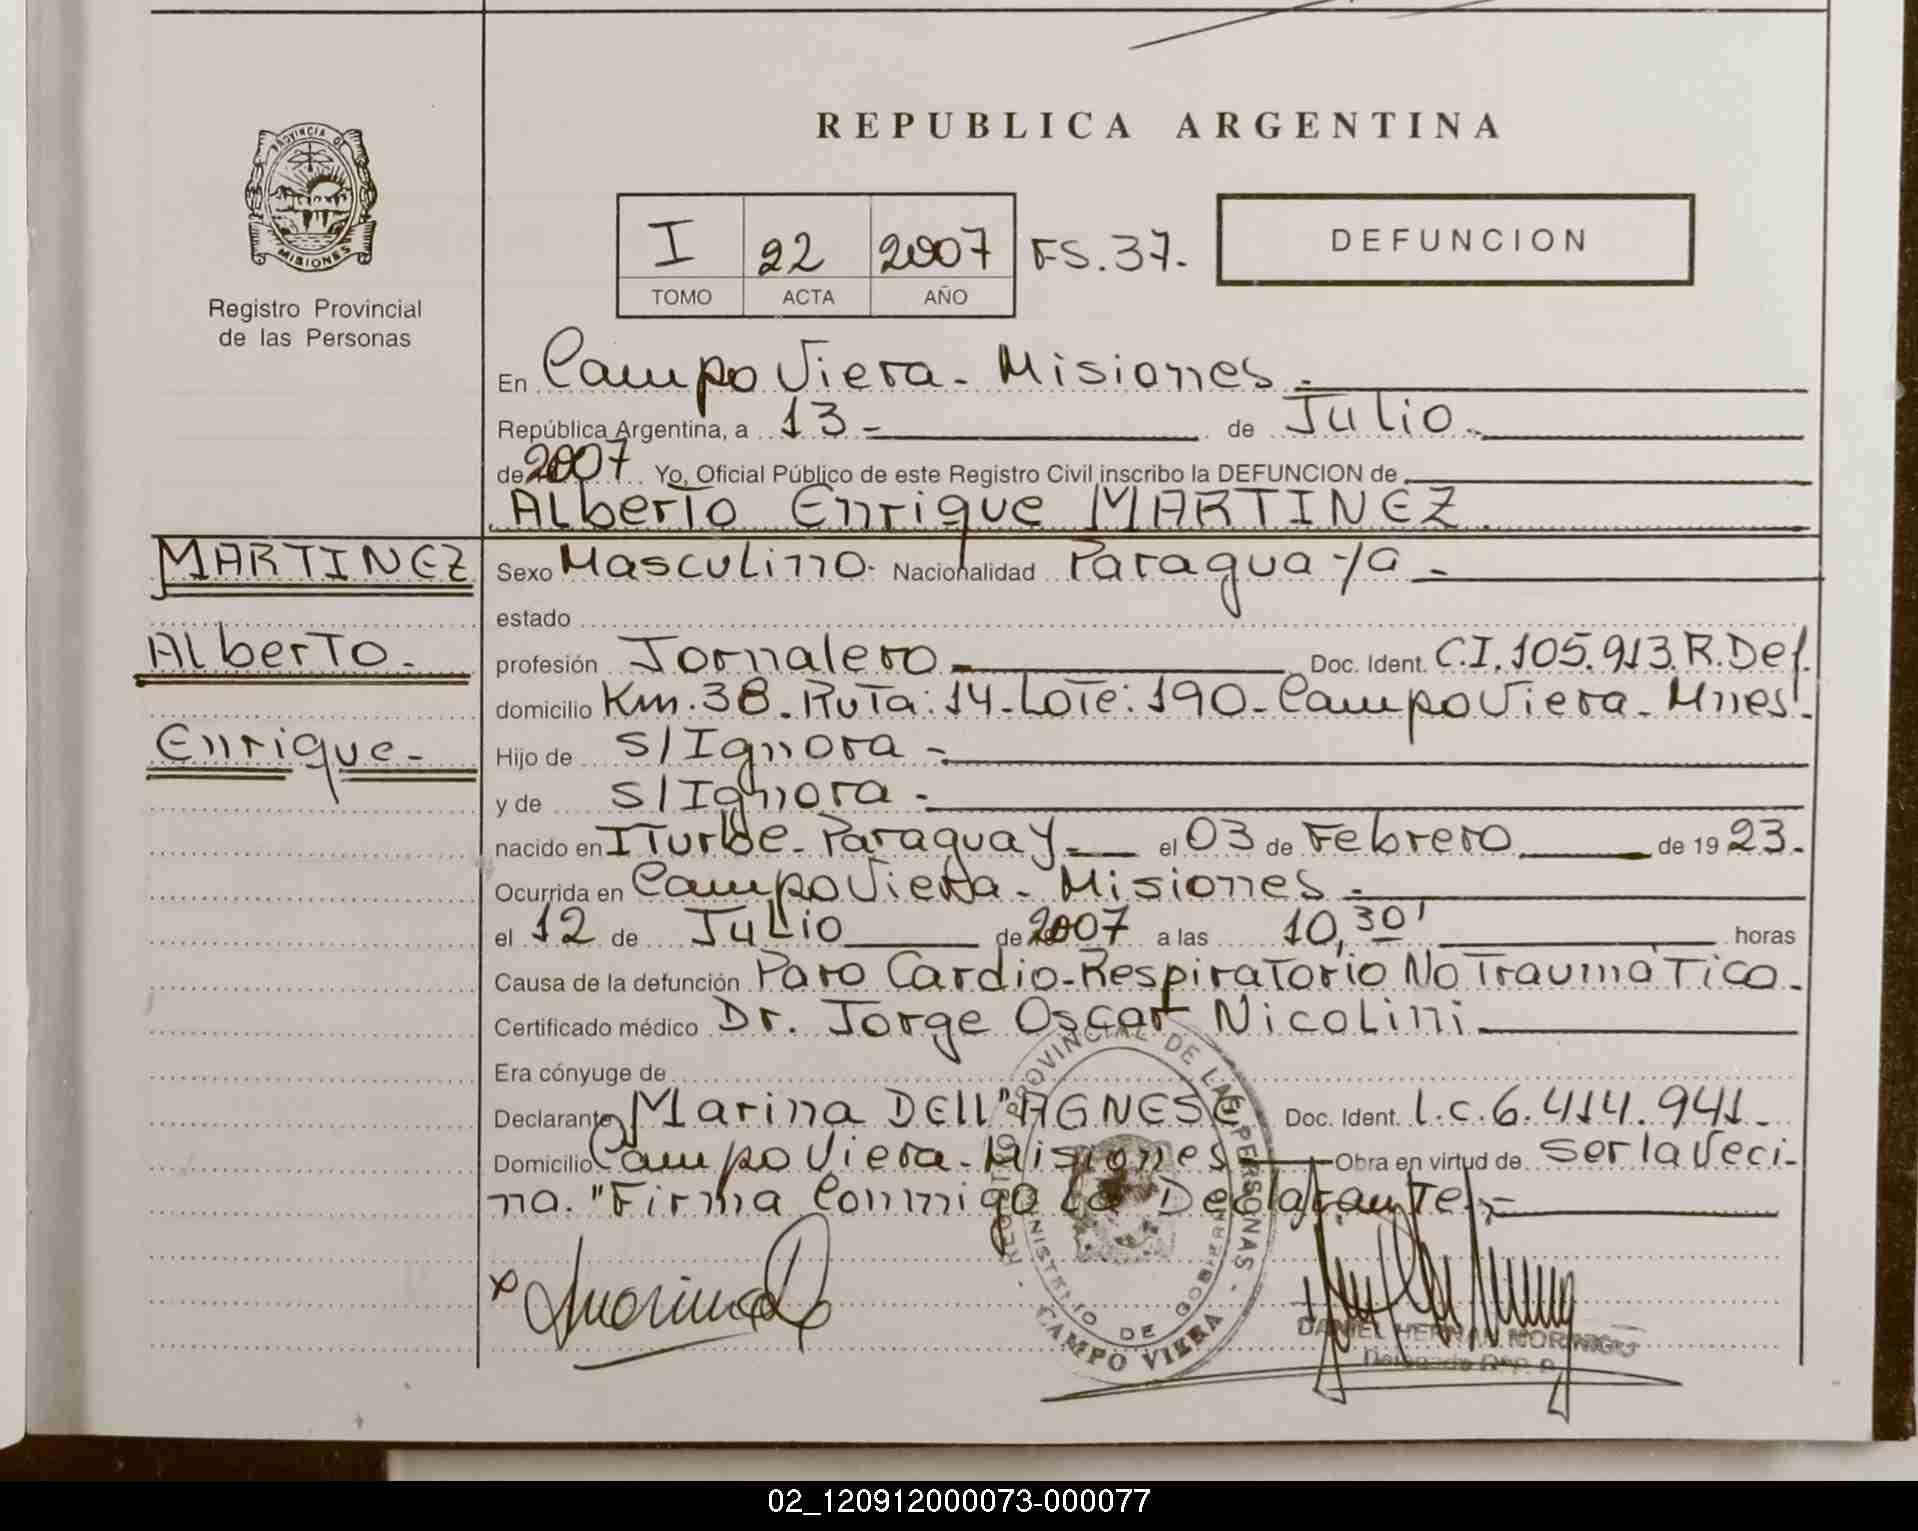 REPUBLICA ARGENTINA
PROVINCIA DE
MISIONES
Registro Provincial
de las Personas
I 22 2007 FS.37.
TOMO ACTA AÑO
DEFUNCION
En Campo Viera - Misiones.
República Argentina, a 13 - de Julio.
de 2007 Yo, Oficial Público de este Registro Civil inscribo la DEFUNCION de
Alberto Enrique MARTINEZ
MARTINEZ
Alberto.
Enrique -
Sexo Masculino. Nacionalidad Paraguaya -
estado
profesión Jornalero Doc. Ident. C.I. 105.913. R. Def.
domicilio Km. 38 - Ruta: 14 - Lote: 190 - Campo Viera - Mnes.
Hijo de s/Ignora -
y de s/Ignora -
nacido en ITurbe - Paraguay el 03 de Febrero de 1923.
Ocurrida en Campo Viera - Misiones -
el 12 de Julio de 2007 a las 10,30' horas
Causa de la defunción Paro Cardio-Respiratorio No Traumático.
Certificado médico Dr. Jorge Oscar Nicolini
Era cónyuge de
Declarante Marina DELL"AGNESE Doc. Ident. l.c. 6.414.941.
Domicilio Campo Viera - Misiones Obra en virtud de ser la veci-
na. "Firma Conmigo la Declarante".-
PROVINCIAL DE LAS PERSONAS
MINISTERIO DE GOBIERNO
CAMPO VIERA
x
DANIEL HERNAN
Delegado
02_120912000073-000077